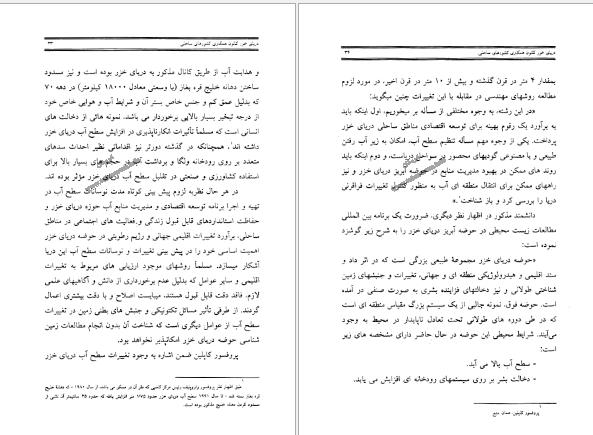 دریای خزر کانون همکاری کشورهای ساحلی ۳۴
بمقدار ۴ متر در قرن گذشته و بیش از ۱۰ متر در قرن اخیر، در مورد لزوم
مطالعه روشهای مهندسی در مقابله با این تغییرات چنین میگوید:
«در این رشته، به وجوه مختلفی از مسأله بر میخوریم، اول اینکه باید
به برآورد یک رقوم بهینه برای توسعه اقتصادی مناطق ساحلی دریای خزر
پرداخت. یکی از وجوه مهم مسأله تنظیم سطح آب، امکان به زیر آب رفتن
طبیعی و یا مصنوعی گودیهای محصور در سواحل دریاست، و دوم اینکه باید
روند های ممکن در بهبود مدیریت منابع در حوضه آبریز دریای خزر و نیز
راههای ممکن برای انتقال منطقه ای آب به منظور کنترل تغییرات فراقرنی
دریا را بررسی کرد و باز شناخت.»
دانشمند مذکور در اظهار نظر دیگری، ضرورت یک برنامه بین المللی
مطالعات زیست محیطی در حوضه آبریز دریای خزر را به شرح زیر گوشزد
نموده است:
«حوضه دریای خزر مجموعۀ طبیعی بزرگی است که در اثر داد و
ستد اقلیمی و هیدرولوژیکی منطقه ای و جهانی، تغییرات و جنبشهای زمین
شناختی طولانی و نیز دخالتهای فزاینده بشری به صورت صنفی در آمده
است. حوضه فوق، نمونه جالبی از یک سیستم بزرگ مقیاس منطقه ای است
که در طی دوره های طولانی تحت تعادل ناپایدار در محیط به وجود
می‌آیند. شرایط محیطی این حوضه در حال حاضر دارای مشخصه های زیر
است:
- سطح آب بالا می آید.
- دخالت بشر بر روی سیستمهای رودخانه ای افزایش می یابد.
۱
پروفسور کاپلین، همان منبع
دریای خزر کانون همکاری کشورهای ساحلی ۳۳
و هدایت آب از طریق کانال مذکور به دریای خزر بوده است و نیز مسدود
ساختن دهانه خلیج قره بغاز (با وسعتی معادل ۱۸۰۰۰ کیلومتر) در دهه ۷۰
که بدلیل عمق کم و جنس خاص بستر آن و شرایط آب و هوایی خاص خود
از درجه تبخیر بسیار بالایی برخوردار می باشد، نمونه هائی از دخالت های
انسانی است که مسلماً تأثیرات انکارناپذیری در افزایش سطح آب دریای خزر
داشته اند، همچنانکه در گذشته دورتر نیز اقداماتی نظیر احداث سدهای
متعدد بر روی رودخانه ولگا و برداشت آب در حجم های بسیار بالا برای
استفاده کشاورزی و صنعتی در تقلیل سطح آب دریای خزر مؤثر بوده اند.
در هر حال نظربه لزوم پیش بینی کوتاه مدت نوسانات سطح آب در
تهیه و اجرا برنامه توسعه اقتصادی و مدیریت منابع آب حوزه دریای خزر و
حفاظت استانداردهای قابل قبول زندگی و فعالیت های اجتماعی در مناطق
ساحلی، برآورد تغییرات اقلیمی جهانی و رژیم رطوبتی در حوضه دریای خزر
اهمیت اساسی خود را در پیش بینی تغییرات و نوسانات سطح آب این دریا
آشکار میسازد. مسلماً روشهای موجود ارزیابی های مربوط به تغییرات
اقلیمی و سایر عوامل که بدلیل عدم برخورداری از دانش و آگاهیهای علمی
لازم، فاقد دقت قابل قبول هستند، میبایست اصلاح و با دقت بیشتری اعمال
گردند. از طرفی تأثیر مسائل تکتونیکی و جنبش های بطنی زمین در تغییرات
سطح آب از عوامل دیگری است که شناخت آن بدون انجام مطالعات زمین
شناسی حوضه دریای خزر امکانپذیر نخواهد بود.
پروفسور کاپلین ضمن اشاره به وجود تغییرات سطح آب دریای خزر
۱
طبق اظهار نظر پروفسور رئیس مرکز کاسپی که نظر آن در ممکن می باشد، از سال ۱۹۸۰ - که دهانۀ خلیج
قره بغاز بسته شد - تا سال ۱۹۹۱ سطح آب دریای خزر حدود ۱۷۵ متر افزایش یافته که حدود ۳۵ سانتیمتر آن ناشی از
مسدود کردن دهانه خلیج مذکور بوده است.